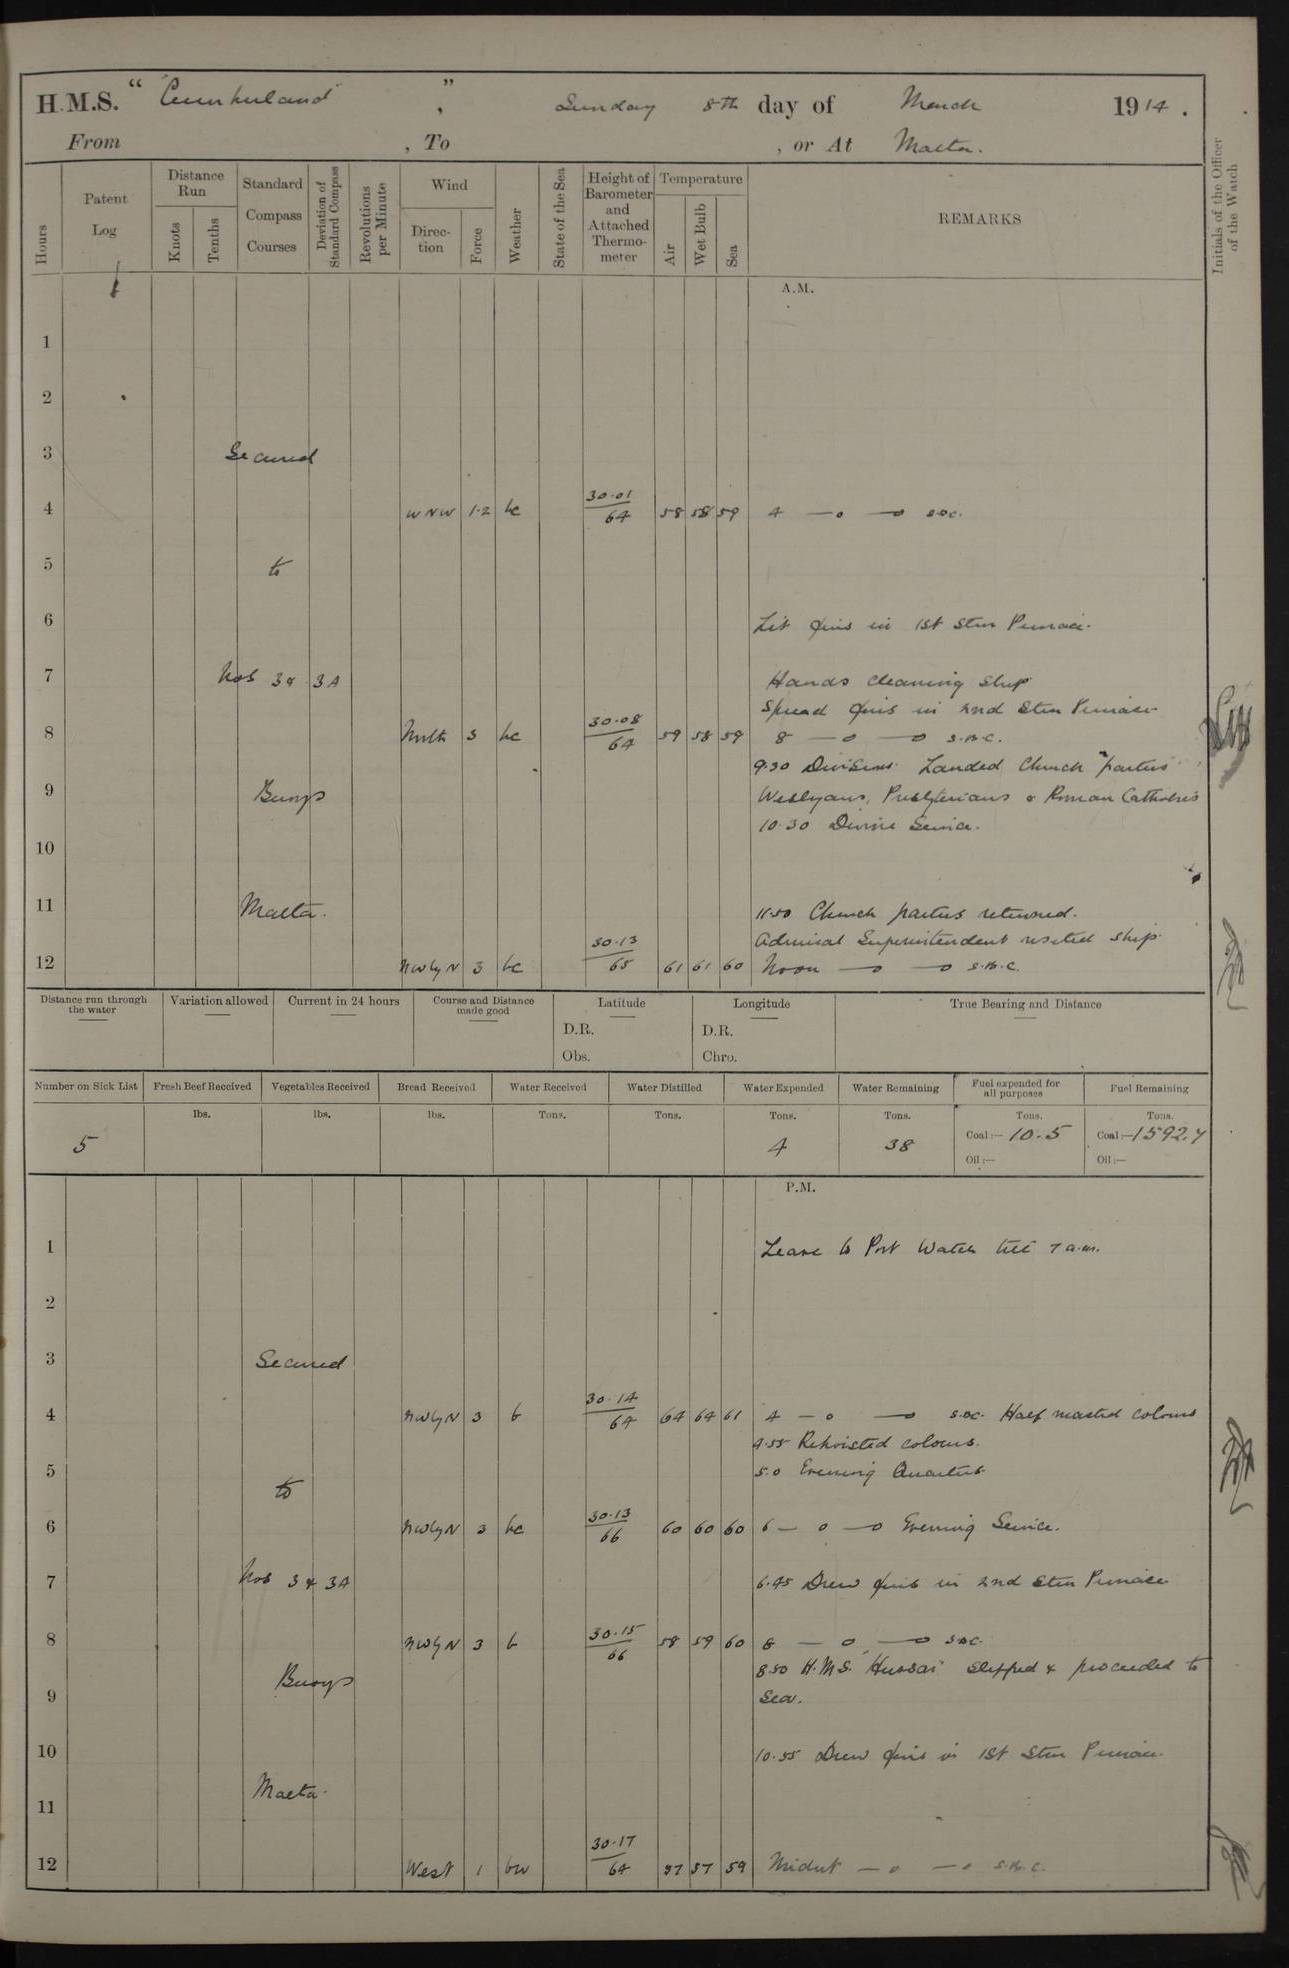 H.M.S. "Cumberland", Sunday 8th day of March 1914.
From , To , or At Malta.
Hours
Patent Log
Distance Run
Knots
Tenths
Standard Compass Courses
Deviation of Standard Compass
Revolutions per Minute
Wind
Direction
Force
Weather
State of the Sea
Height of Barometer and Attached Thermometer
Temperature
Air
Wet Bulb
Sea
REMARKS
Initials of the Officer of the Watch
A.M.
1
2
3 Secured
4 WNW 1-2 bc 30.01 64 58 58 59 4 —o —o S.D.C.
5 to
6 Lit fires in 1st Stm Pinnace.
7 Nos 3 & 3A Hands cleaning ship
Spread fires in 2nd Stm Pinnace
8 North 3 bc 30.08 64 59 58 59 8 —o —o S.D.C.
9.30 Divisions. Landed Church parties
9 Buoys Wesleyans, Presbyterians & Roman Catholics
10.30 Divine Service.
10
11 Malta. 11.50 Church parties returned.
Admiral Superintendent visited ship
12 NWbyN 3 bc 30.13 65 61 61 60 Noon —o —o S.D.C.
Distance run through the water
Variation allowed
Current in 24 hours
Course and Distance made good
Latitude
D.R.
Obs.
Longitude
D.R.
Chro.
True Bearing and Distance
Number on Sick List
Fresh Beef Received
Vegetables Received
Bread Received
Water Received
Water Distilled
Water Expended
Water Remaining
Fuel expended for all purposes
Fuel Remaining
lbs. lbs. lbs. Tons. Tons. Tons. Tons. Tons. Tons.
5 4 38 Coal:— 10.5 Coal:— 1592.7
Oil:— Oil:—
P.M.
1 Leave to Port Watch till 7 a.m.
2
3 Secured
4 NWbyN 3 b 30.14 64 64 64 61 4 —o —o S.D.C. Half masted colours
4.55 Rehoisted colours.
5 5.0 Evening Quarters
to
6 NWbyN 3 bc 30.13 66 60 60 60 6 —o —o Evening Service.
7 Nos 3 & 3A 6.45 Drew fires in 2nd Stm Pinnace
8 NWbyN 3 b 30.15 66 58 59 60 8 —o —o S.D.C.
8.50 H.M.S. "Hussar" slipped & proceeded to
9 Buoys Sea.
10 10.55 Drew fires in 1st Stm Pinnace.
11 Malta.
12 West 1 bw 30.17 64 57 57 59 Midnt —o —o S.D.C.